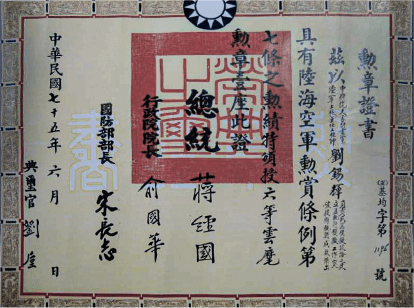 勲章證書
基均字第1196號
茲以
劉錫輝
具有陸海空軍勲賞條例第
七條之勲績特頒授六等雲麾
勲章壹座此證
總統 蔣經國
行政院院長 俞國華
國防部部長 宋長志
中華民國七十五年六月 日
典璽官 劉垕